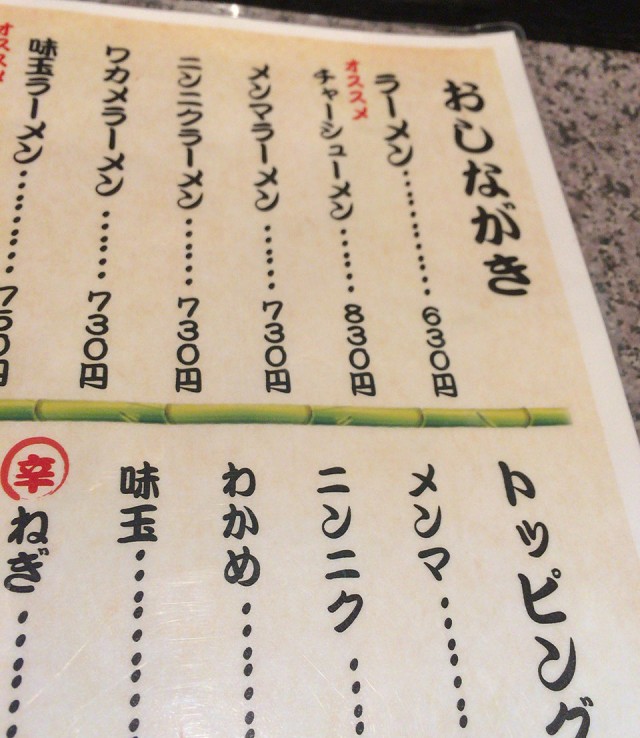 おしながき
ラーメン…………630円
オススメ
チャーシューメン……830円
メンマラーメン……730円
ニンニクラーメン……730円
ワカメラーメン……730円
オススメ
味玉ラーメン…………750円
トッピング
メンマ
ニンニク
わかめ
味玉
辛ねぎ